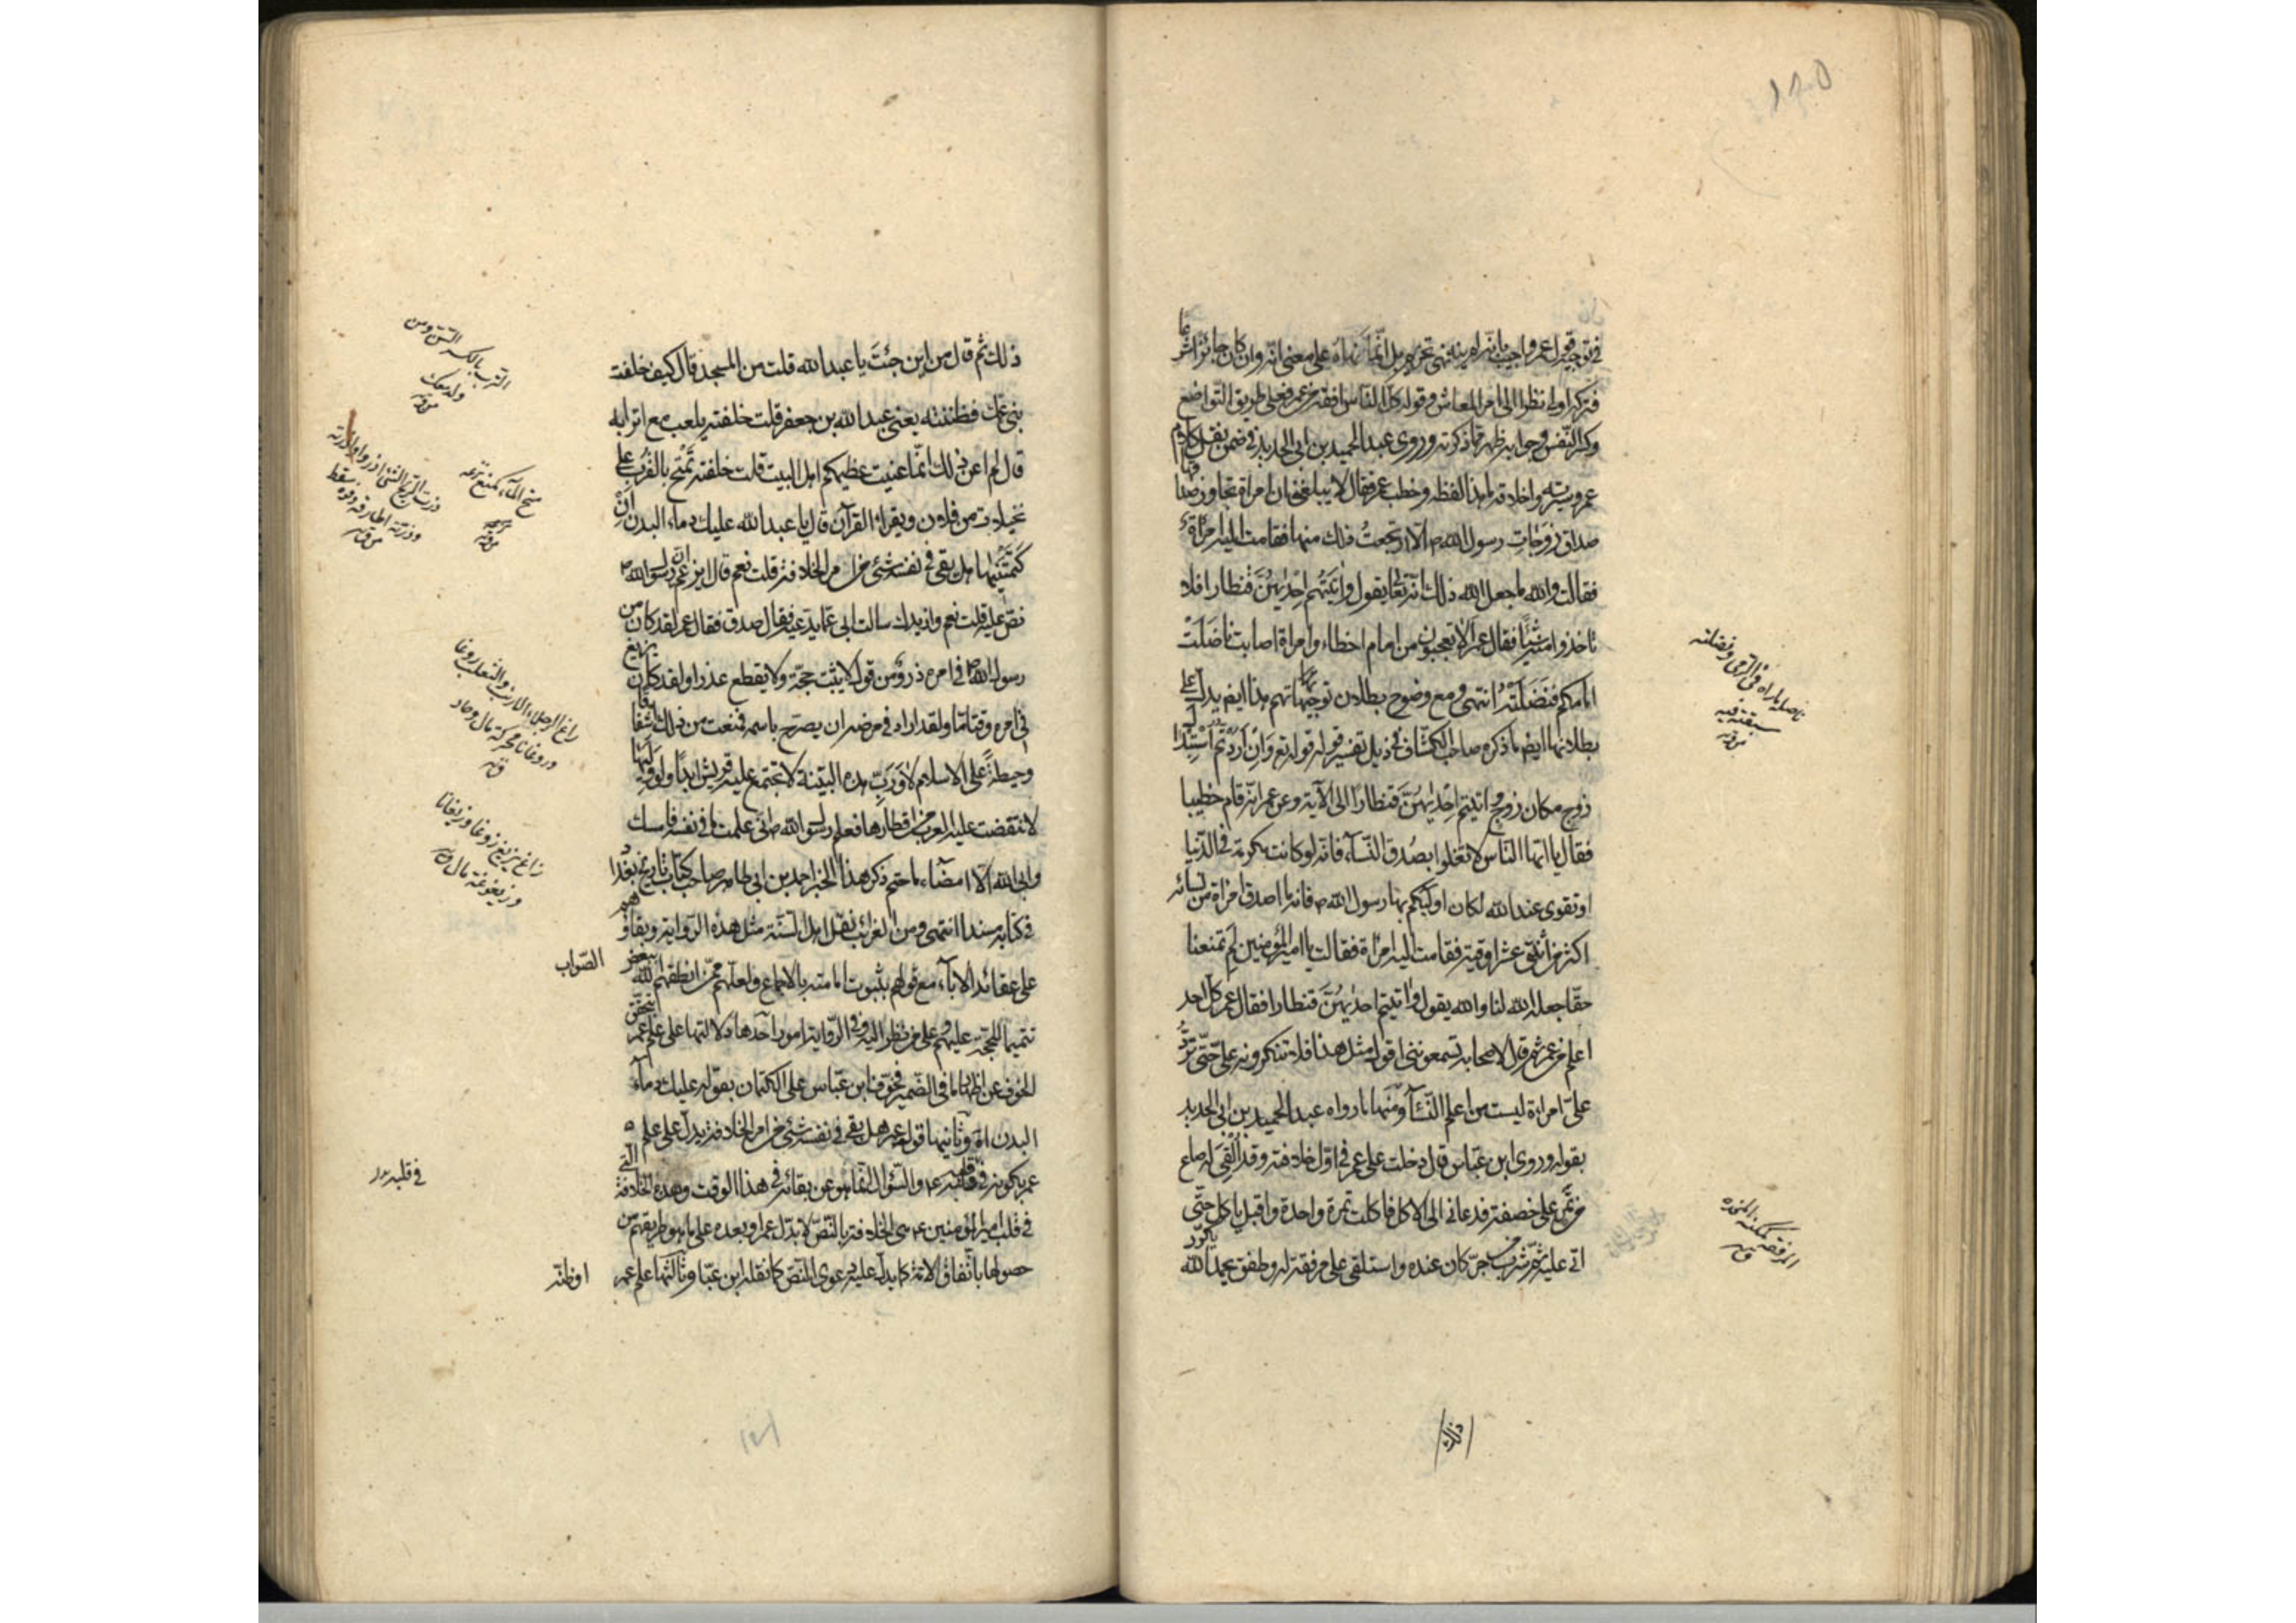 في توجيه قول عمر واجيب بانه لم ينه نهى تحريم بل انما نهاه على معنى انه وان كان جائزا شرعا
فتركه اولى نظرا الى امر المعاش وقوله كل الناس افقه من عمر فعلى طريق التواضع
وكسر النفس وجوابه ظهر مما ذكرته وروى عبد الحميد بن ابى الحديد في ضمن نقل كلام
عمر وسيرته واخلاقه ما هذا لفظه وخطب عمر فقال لا يبلغنى ان امراة تجاوز صداقها
صداق زوجات رسول الله ص الا ارتجعت ذلك منها فقامت اليه امراة
فقالت والله ما جعل الله ذلك لك انه تعالى يقول واتيتم احديهن قنطارا فلا
تاخذوا منه شيئا فقال عمر الا تعجبون من امام اخطاء وامراة اصابت ناضلت
امامكم فنضلته انتهى ومع وضوح بطلان توجيهاتهم هذا ايضا يدل على
بطلانها ايضا ما ذكره صاحب الكشاف في ذيل تفسير قوله تع وان اردتم استبدال
زوج مكان زوج واتيتم احديهن قنطارا الى الآية وعن عمر انه قام خطيبا
فقال يا ايها الناس لا تغلوا بصدق النساء فانه لو كانت مكرمة في الدنيا
او تقوى عند الله لكان اوليكم بها رسول الله ص فانه ما اصدق امراة من نسائه
اكثر من اثنى عشر اوقية فقامت اليه امراة فقالت يا امير المؤمنين لم تمنعنا
حقا جعله الله لنا والله يقول واتيتم احديهن قنطارا فقال عمر كل احد
اعلم من عمر ثم قال لاصحابه تسمعوننى اقول مثل هذا فلا تنكرونه على حتى ترد
على امراءة ليست من اعلم النساء ومنها ما رواه عبد الحميد بن ابى الحديد
بقوله وروى ابن عباس قال دخلت على عمر في اول خلافته وقد القى له صاع
من تمر على خصفة فدعانى الى الاكل فاكلت تمرة واحدة واقبل ياكل حتى
اتى عليه ثم شرب من جر كان عنده واستلقى على مرفقة له وطفق يحمد الله
يكرر
ذلك
ناضله باراه في الرمى ونضلته
سبقته فيه
المرفقة كمكنسة المخدة
ق
ذلك ثم قال من اين جئت يا عبد الله قلت من المسجد قال كيف خلفت
بنى عمك فظننته يعنى عبد الله بن جعفر قلت خلفته يلعب مع اترابه
قال لم اعن ذلك انما عنيت عظيمكم اهل البيت قلت خلفته يمتح بالغرب على
نخيلات من فلان ويقراء القرآن قال يا عبد الله عليك دماء البدن ان
كتمتنيها هل بقى في نفسه شئ من امر الخلافة قلت نعم قال ايزعم ان رسول الله ص
نص عليه قلت نعم وازيدك سالت ابى عما يدعيه فقال صدق فقال عمر لقد كان من
رسول الله ص في امره ذرو من قول لا يثبت حجة ولا يقطع عذرا ولقد كان يزيغ
في امره وقتا ما ولقد اراد في مرضه ان يصرح باسمه فمنعت من ذلك اشفاقا
وحيطة على الاسلام لا ورب هذه البنية لا تجتمع عليه قريش ابدا ولو وليها
لانتقضت عليه العرب من اقطارها فعلم رسول الله ص انى علمت ما في نفسه فامسك
وابى الله الا امضاء ما حتم ذكر هذا الخبر احمد بن ابى طاهر صاحب كتاب تاريخ بغداد
في كتابه مسندا انتهى ومن الغرائب نقل اهل السنة مثل هذه الرواية وبقاؤهم
على عقائد الاباء مع قولهم بثبوت امامته بالاجماع ولعلهم ممن انطقهم الله ببعض
الصواب
تتميما للحجة عليهم وعلى من نظر اليه وفي الرواية امور احدها دلالتها على علم عمر بتحقق
الخوف عن اظهار ما في الضمير فخوف ابن عباس على الكتمان بقوله عليك دماء
البدن اه وثانيها قول عمر هل بقى في نفسه شئ من امر الخلافة يدل على علم
عمر بكونه في قلبه ع والسؤال انما هو عن بقائه في هذا الوقت وهذه الخلافة التى
في قلب امير المؤمنين ع هى الخلافة بالنص لا بتدل عمر وبعده على ما هو طريقهم من
حصولها باتفاق الامة كما يدل عليه دعوى النص كما نقله ابن عباس وثالثها علم عمر
الترب بالكسر السن ومن
ولد معك
متح الماء كمنع نزعه
ذرت الريح الشئ ذروا واذرته
وذرته اطارته
راغ الرجل والثعلب روغا
وروغانا محركة مال وحاد
ق
زاغ يزيغ زوغا وزيغانا
وزيغوغة مال ق
في قلبه
او ظنه